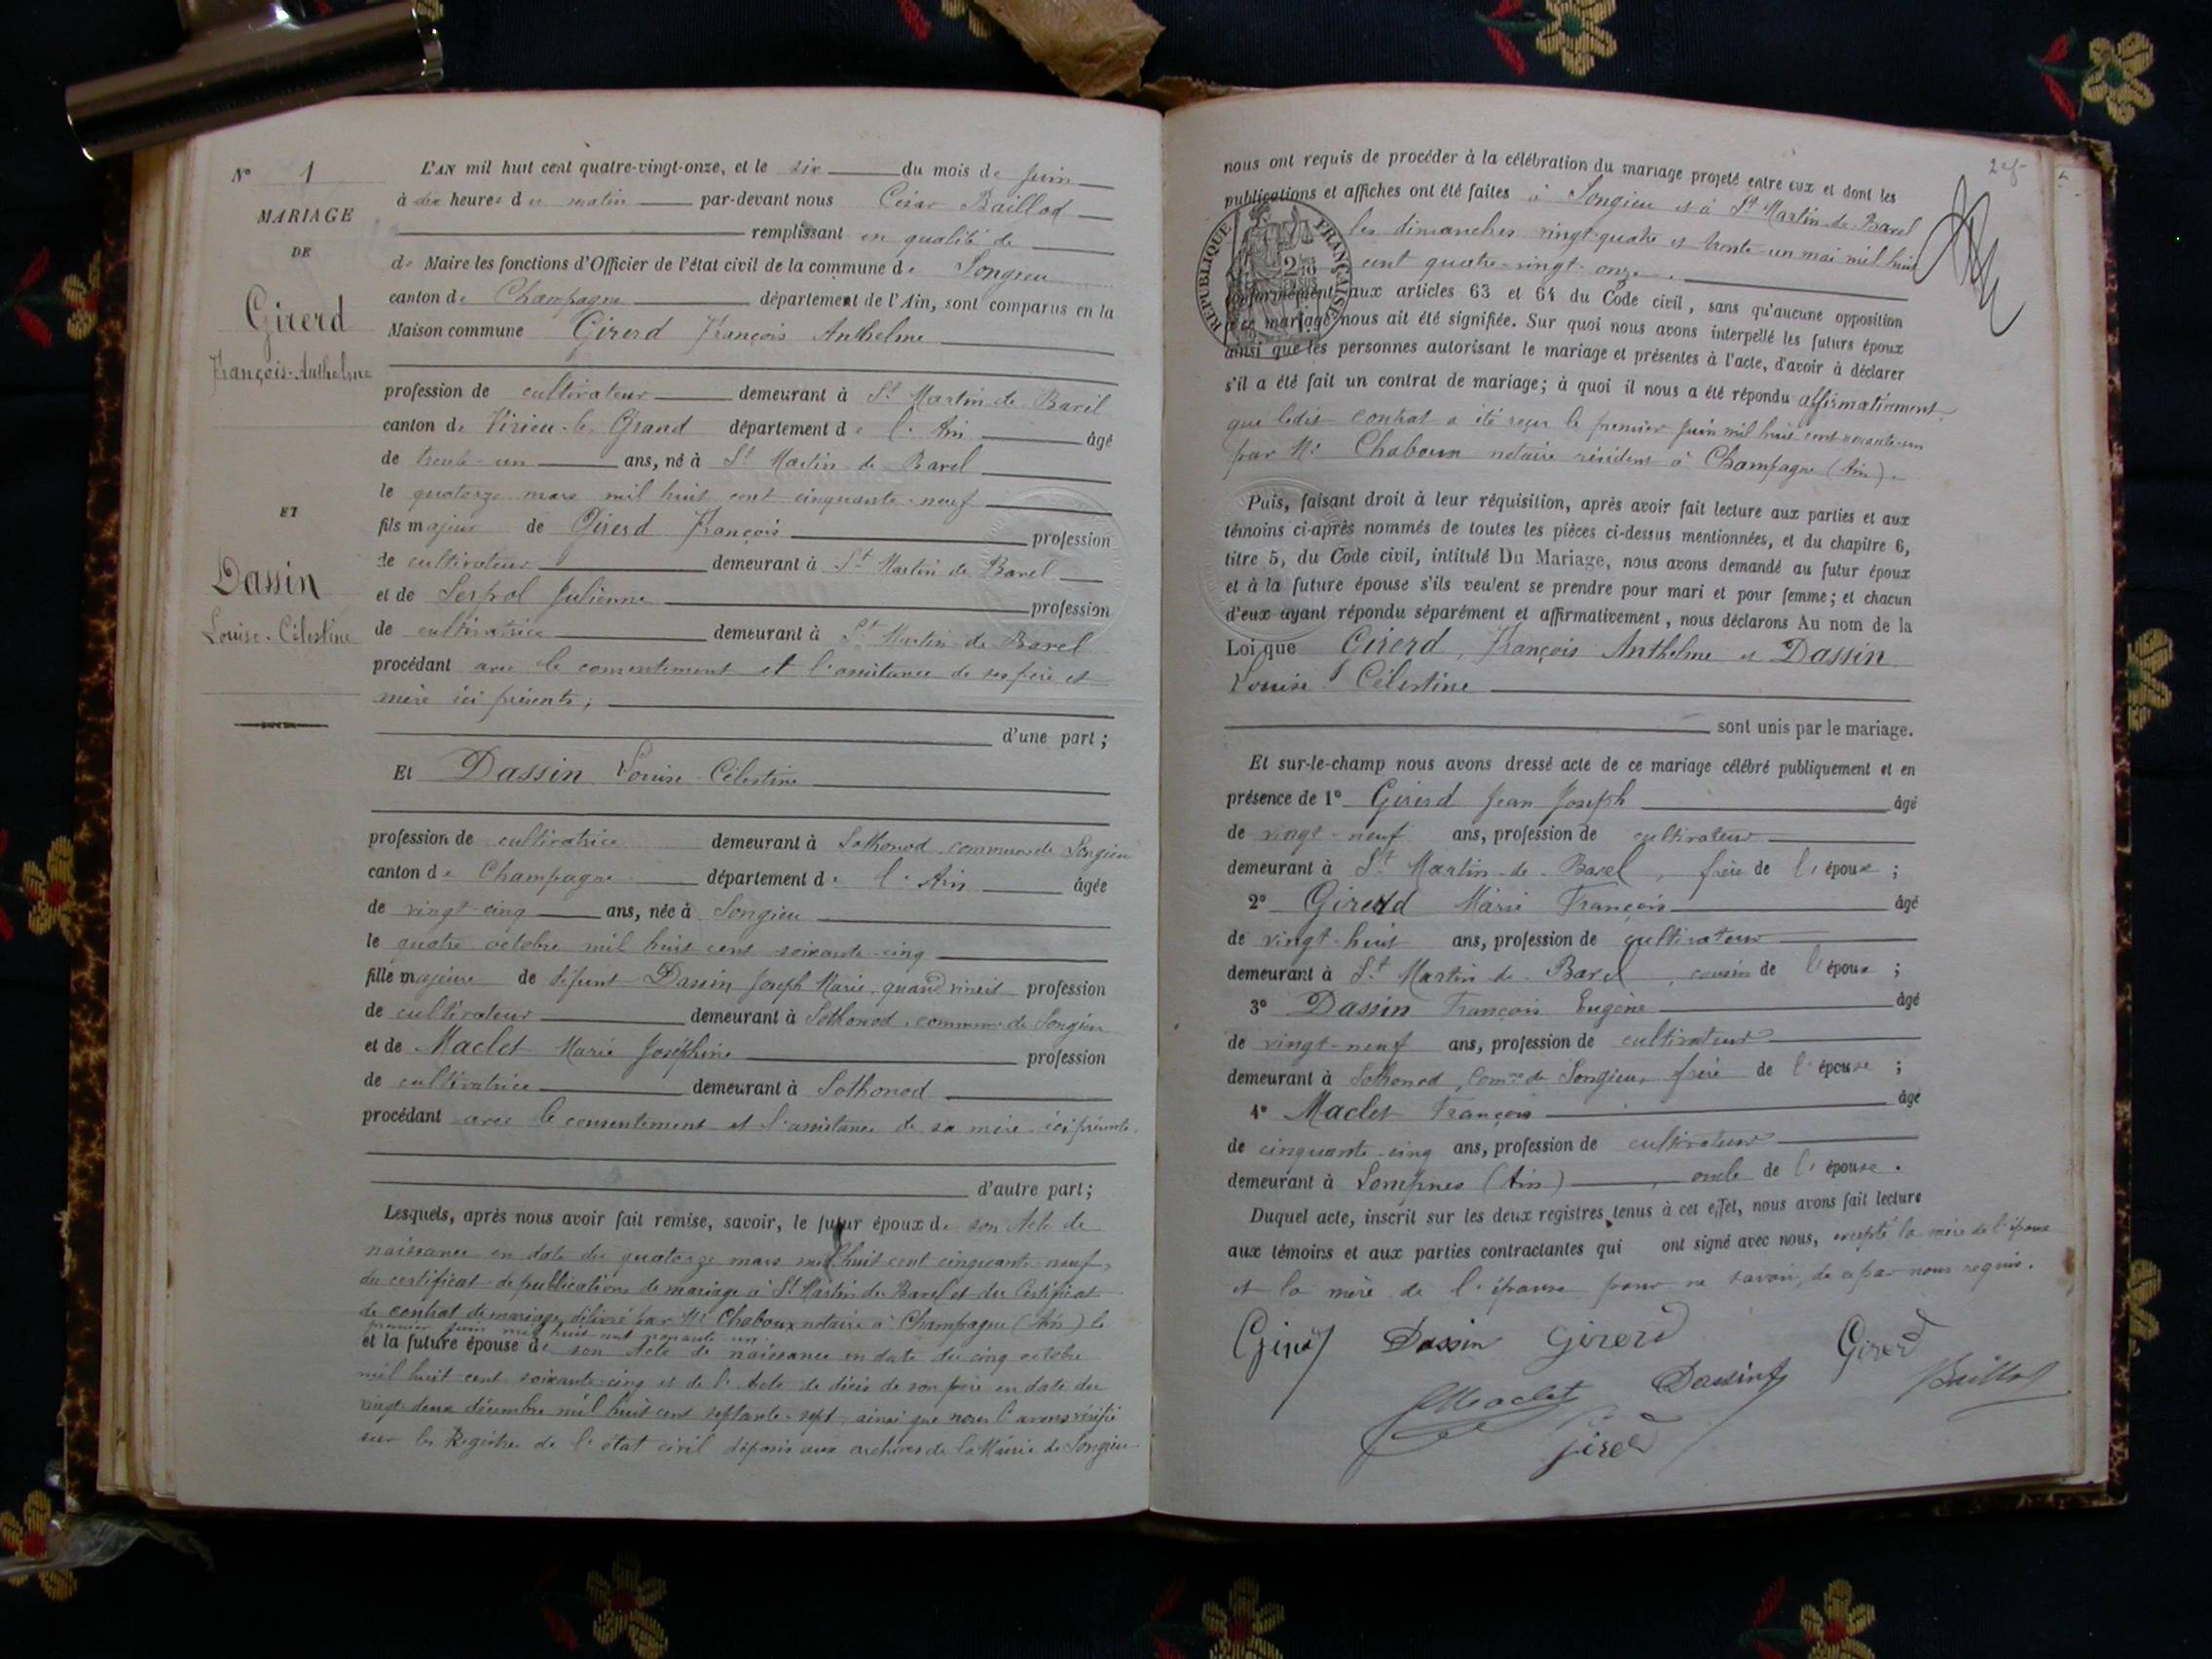 N° 1
MARIAGE
DE
Girerd
François-Anthelme
ET
Dassin
Louise-Célestine
L'AN mil huit cent quatre-vingt-onze, et le six du mois de juin
à dix heures du matin par-devant nous César Baillod
remplissant en qualité de
de Maire les fonctions d'Officier de l'état civil de la commune de Songieu
canton de Champagne département de l'Ain, sont comparus en la
Maison commune Girerd François Anthelme
profession de cultivateur demeurant à St Martin de Bavel
canton de Virieu-le-Grand département de l'Ain âgé
de trente-un ans, né à St Martin de Bavel
le quatorze mars mil huit cent cinquante-neuf
fils majeur de Girerd François profession
de cultivateur demeurant à St Martin de Bavel
et de Serpol Julienne profession
de cultivatrice demeurant à St Martin de Bavel
procédant avec le consentement et l'assistance de ses père et
mère ici présents;
d'une part;
Et Dassin Louise Célestine
profession de cultivatrice demeurant à Sothonod commune de Songieu
canton de Champagne département de l'Ain âgée
de vingt-cinq ans, née à Songieu
le quatre octobre mil huit cent soixante-cinq
fille majeure de défunt Dassin Joseph Marie, quand vivait profession
de cultivateur demeurant à Sothonod, commune de Songieu
et de Maclet Marie Joséphine profession
de cultivatrice demeurant à Sothonod
procédant avec le consentement et l'assistance de sa mère ici présente.
d'autre part;
Lesquels, après nous avoir fait remise, savoir, le futur époux de son Acte de
naissance en date du quatorze mars mil huit cent cinquante-neuf,
du certificat de publications de mariage à St Martin de Bavel et du Certificat
de contrat de mariage délivré par Me Chaboux notaire à Champagne (Ain) le
premier juin mil huit cent nonante-un
et la future épouse de son Acte de naissance en date du cinq octobre
mil huit cent soixante-cinq et de l'Acte de décès de son père en date du
vingt deux décembre mil huit cent septante-sept, ainsi que nous l'avons vérifié
sur les Registres de l'état civil déposés aux archives de la Mairie de Songieu
nous ont requis de procéder à la célébration du mariage projeté entre eux et dont les
publications et affiches ont été faites à Songieu et à St Martin-de-Bavel
les dimanches vingt-quatre et trente-un mai mil huit
cent quatre-vingt-onze.
RÉPUBLIQUE FRANÇAISE
conformément aux articles 63 et 64 du Code civil, sans qu'aucune opposition
à ce mariage nous ait été signifiée. Sur quoi nous avons interpellé les futurs époux
ainsi que les personnes autorisant le mariage et présentes à l'acte, d'avoir à déclarer
s'il a été fait un contrat de mariage; à quoi il nous a été répondu affirmativement
que ledit contrat a été reçu le premier juin mil huit cent nonante-un
par Me Chaboux notaire résident à Champagne (Ain).
Puis, faisant droit à leur réquisition, après avoir fait lecture aux parties et aux
témoins ci-après nommés de toutes les pièces ci-dessus mentionnées, et du chapitre 6,
titre 5, du Code civil, intitulé Du Mariage, nous avons demandé au futur époux
et à la future épouse s'ils veulent se prendre pour mari et pour femme; et chacun
d'eux ayant répondu séparément et affirmativement, nous déclarons Au nom de la
Loi que Girerd, François Anthelme et Dassin
Louise Célestine
sont unis par le mariage.
Et sur-le-champ nous avons dressé acte de ce mariage célébré publiquement et en
présence de 1° Girerd Jean Joseph âgé
de vingt-neuf ans, profession de cultivateur
demeurant à St Martin-de-Bavel, frère de l'époux;
2° Girerd Marie François âgé
de vingt-huit ans, profession de cultivateur
demeurant à St Martin-de-Bavel, cousin de l'époux;
3° Dassin François Eugène âgé
de vingt-neuf ans, profession de cultivateur
demeurant à Sothonod, Comne de Songieu, frère de l'épouse;
4° Maclet François âgé
de cinquante-cinq ans, profession de cultivateur
demeurant à Lompnes (Ain), oncle de l'épouse.
Duquel acte, inscrit sur les deux registres tenus à cet effet, nous avons fait lecture
aux témoins et aux parties contractantes qui ont signé avec nous, excepté la mère de l'époux
et la mère de l'épouse pour ne savoir, de ce par nous requis.
Girerd Dassin Girerd Girerd
Maclet Dassin f Baillod
Girerd